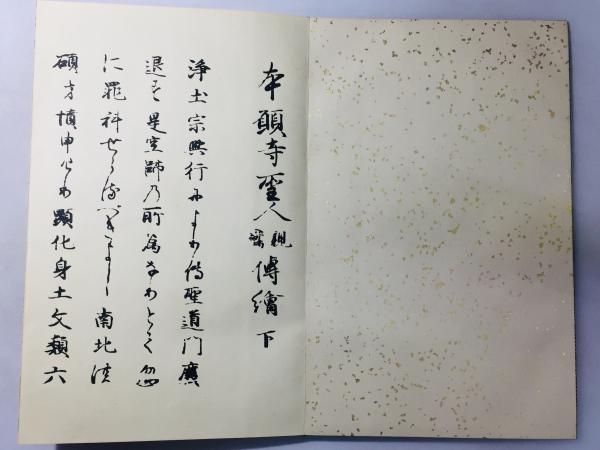 本願寺聖人親鸞傳繪 下
浄土宗興行によりて聖道門廢
退す是空師の所為なりとて忽
に罪科せらるへきよし南北
碩才憤申けり顯化身土文類六